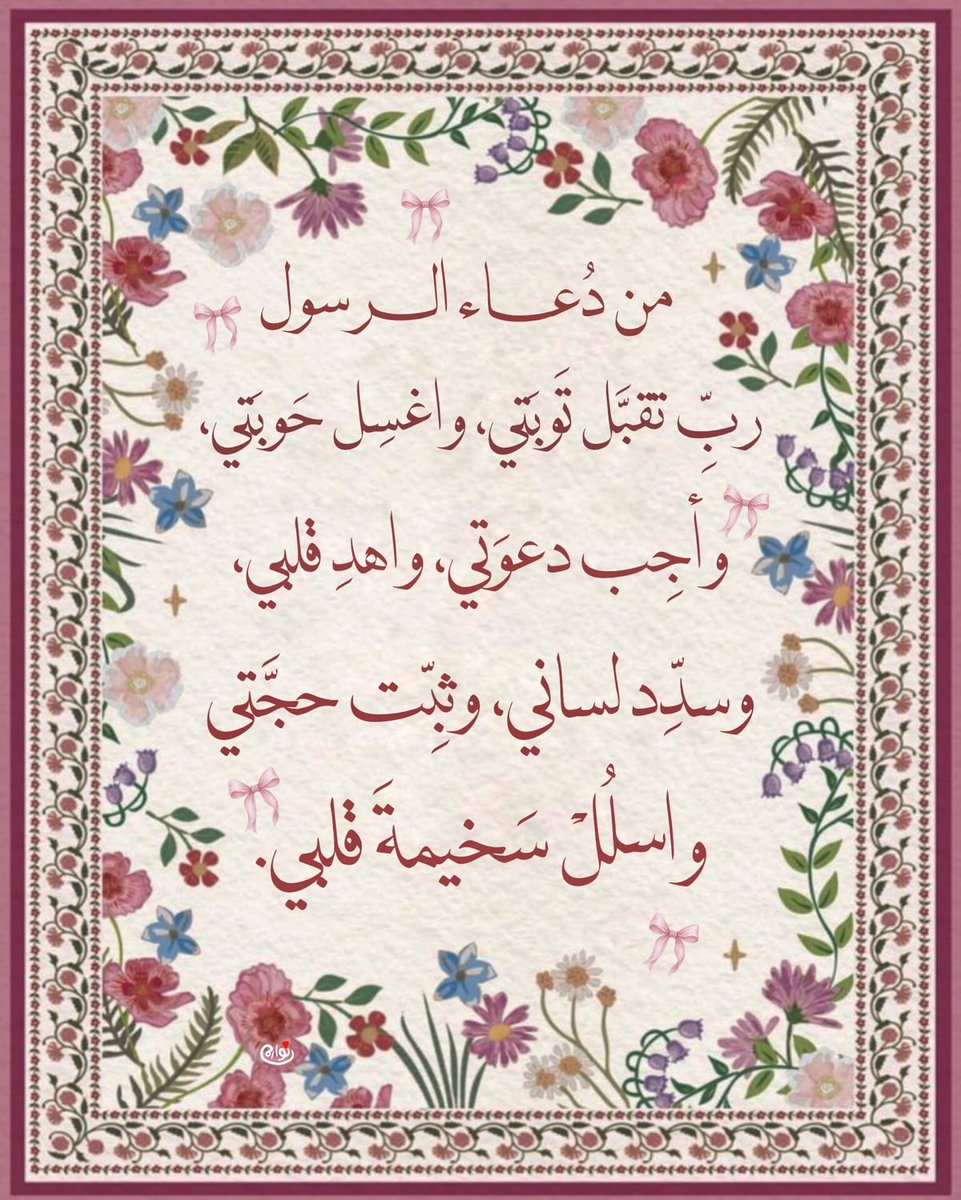 من دُعـاء الـرسول
ربِّ تقبَّل تَوبَتي، واغسِل حَوبَتي،
وأجِب دعوَتي، واهدِ قلبي،
وسدِّد لساني، وثبِّت حجَّتي
واسلُلْ سَخيمةَ قلبي.